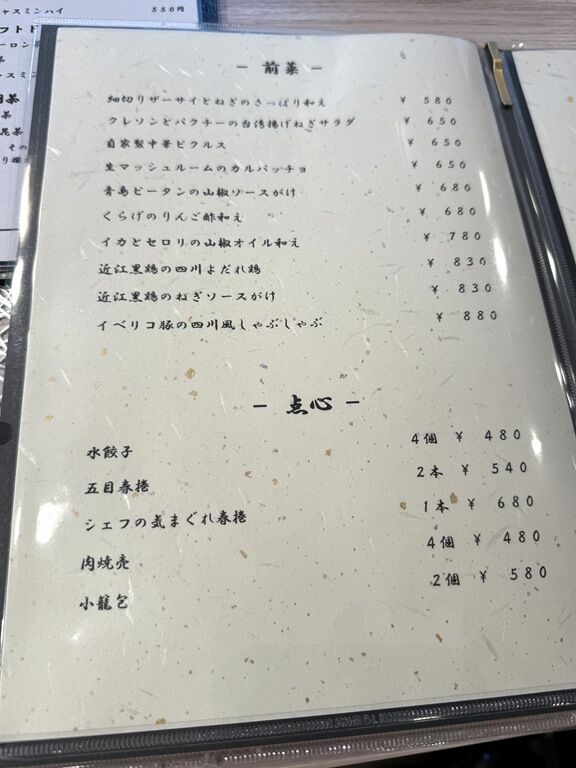 ャスミンハイ 550円
フトド
ーロン
茶
ャスミン
茶
その
— 前菜 —
細切りザーサイとねぎのさっぱり和え ¥ 580
クレソンとパクチーの台湾揚げねぎサラダ ¥ 650
自家製中華ピクルス ¥ 650
生マッシュルームのカルパッチョ ¥ 650
青島ピータンの山椒ソースがけ ¥ 680
くらげのりんご酢和え ¥ 680
イカとセロリの山椒オイル和え ¥ 780
近江黒鶏の四川よだれ鶏 ¥ 830
近江黒鶏のねぎソースがけ ¥ 830
イベリコ豚の四川風しゃぶしゃぶ ¥ 880
— 点心 —
水餃子 4個 ¥ 480
五目春捲 2本 ¥ 540
シェフの気まぐれ春捲 1本 ¥ 680
肉焼売 4個 ¥ 480
小籠包 2個 ¥ 580